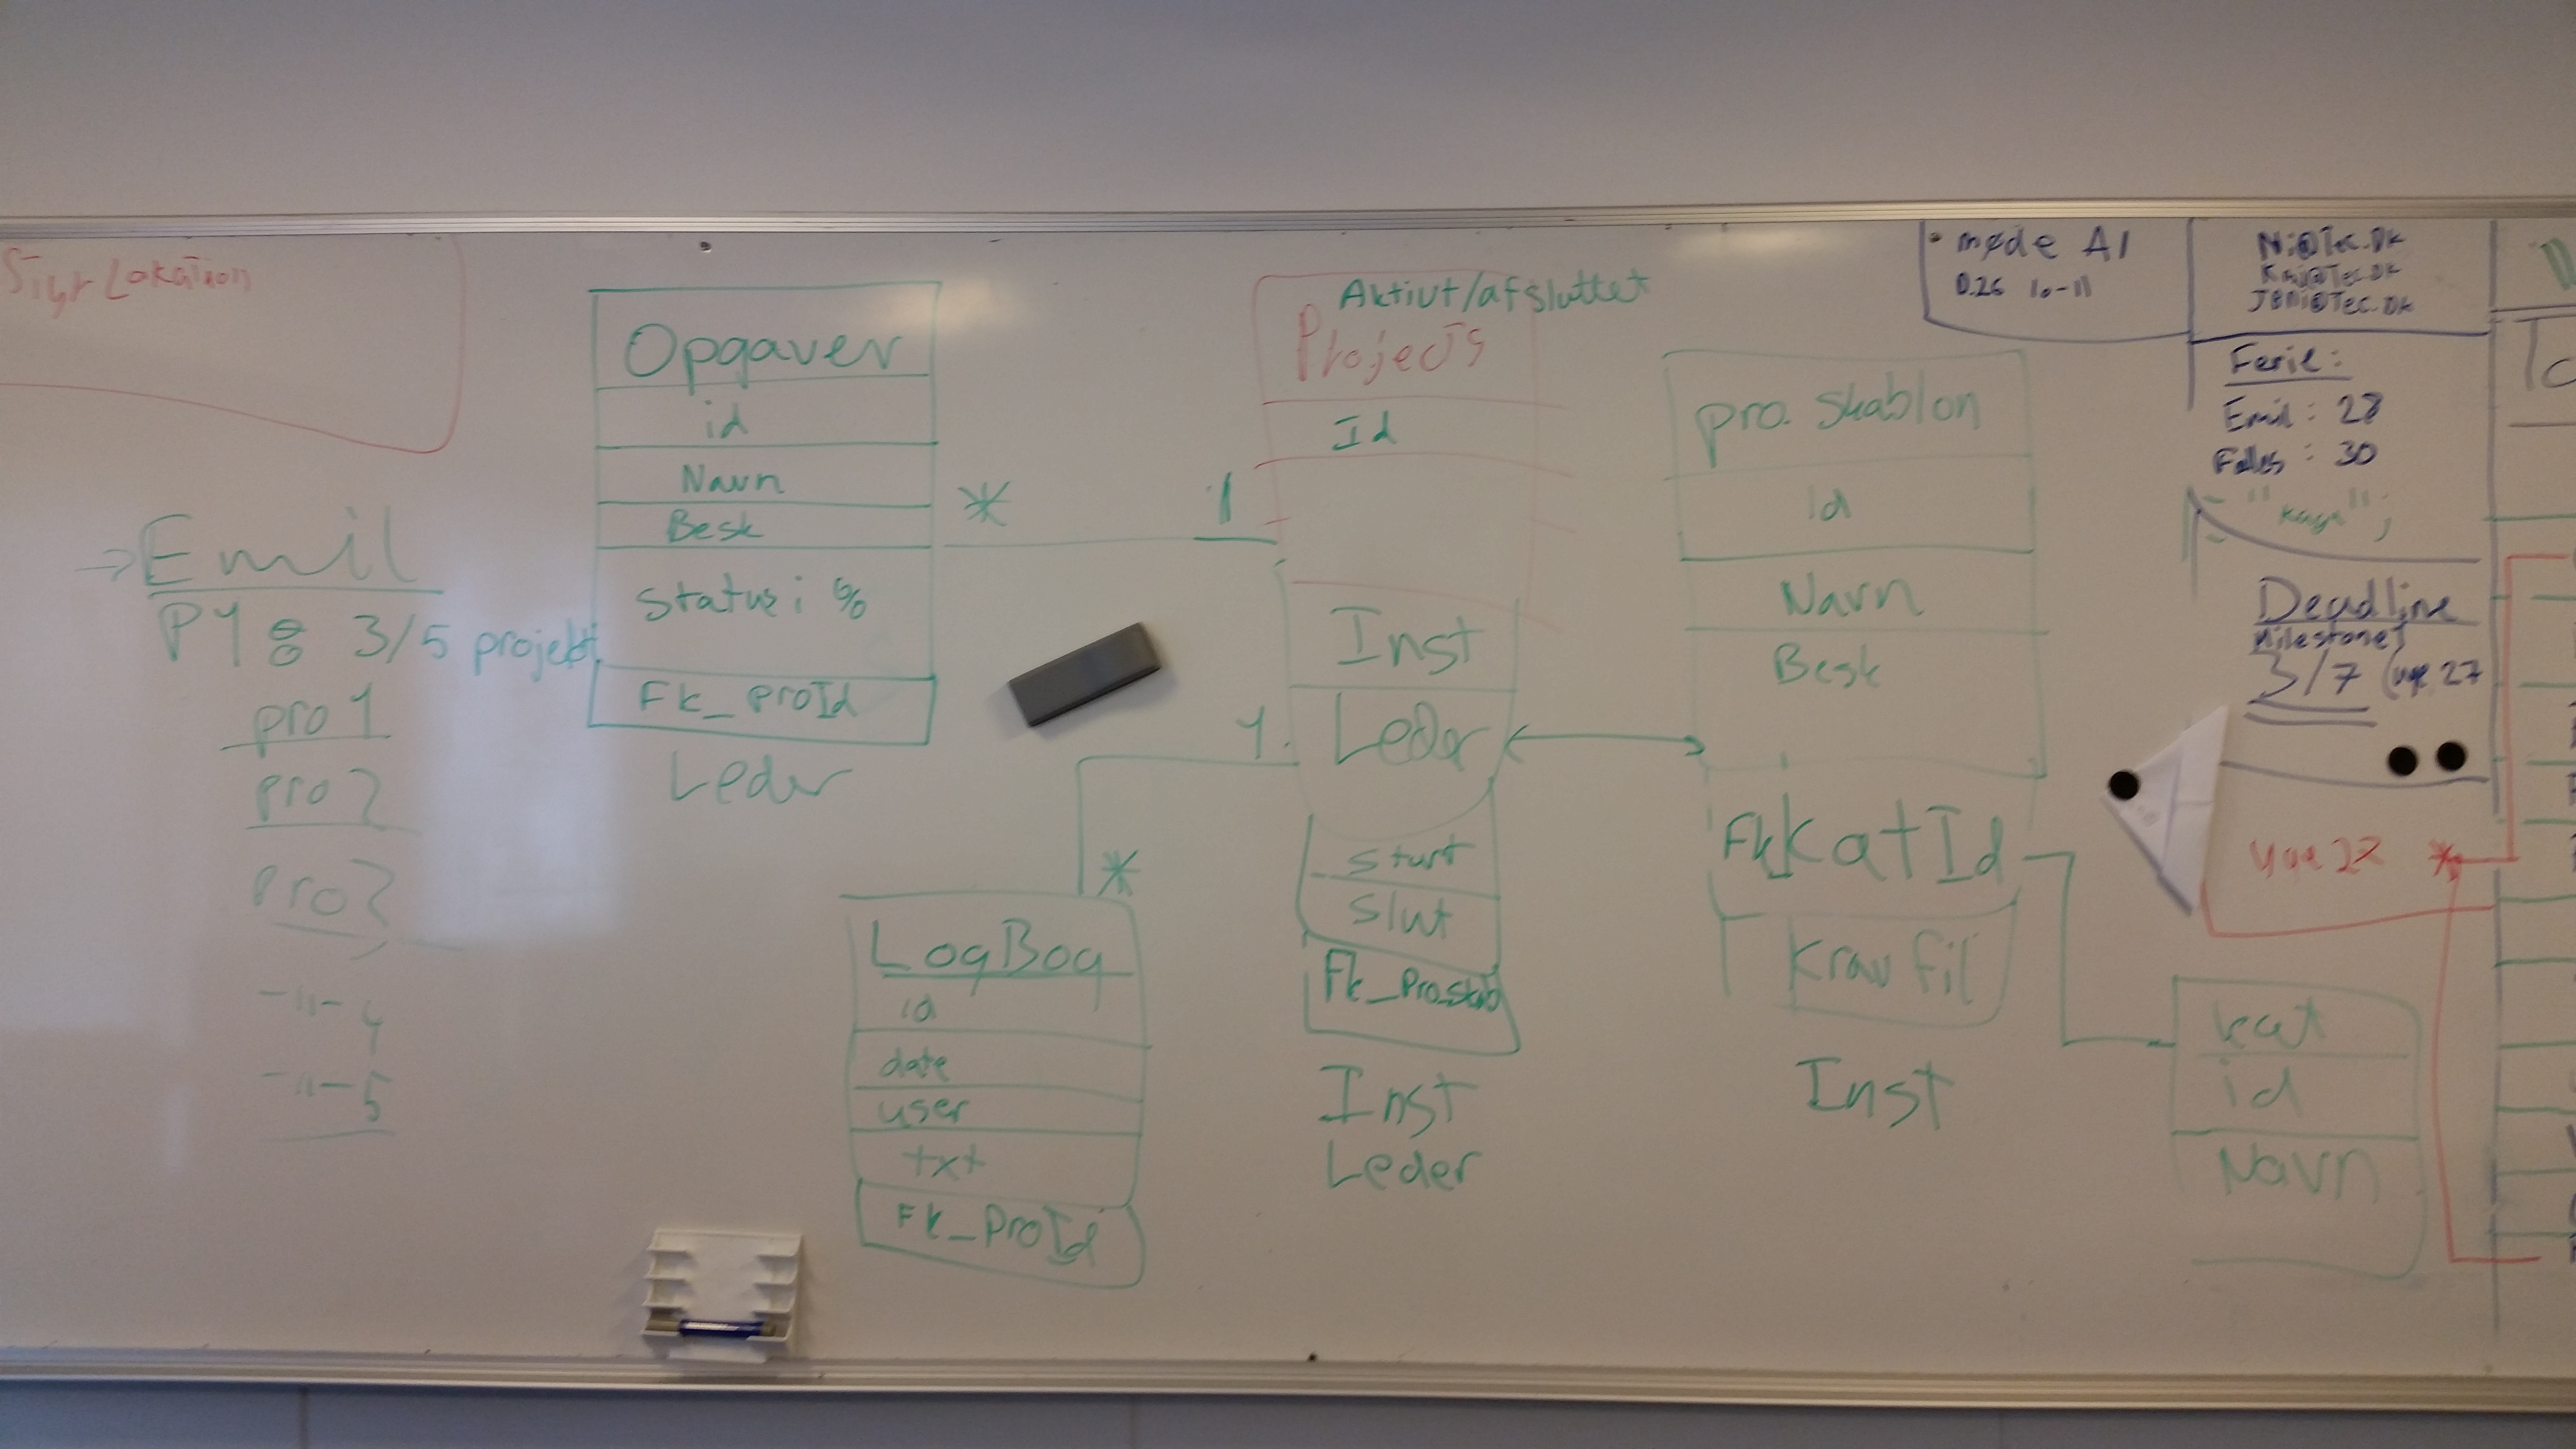 Lokation
Emil
3/5 projekt
pro 1
pro 2
pro 3
-"- 4
-"- 5
Opgaver
id
Navn
Besk
Status i %
Fk_proId
Leder
*
1
Aktivt/afsluttet
Projects
Id
Inst
Leder
Start
Slut
Fk_Pro.skab
Inst
Leder
1
*
LogBog
id
date
user
txt
Fk_ProId
pro. Skablon
Id
Navn
Besk
Fk KatId
Krav fil
Inst
kat
id
Navn
• møde A1
0.26 10-11
Ni@Tec.Dk
JBni@Tec.Dk
Ferie:
Emil: 28
: 30
Deadline
Milestone 1
3/7 (uge 27
uge 27 *